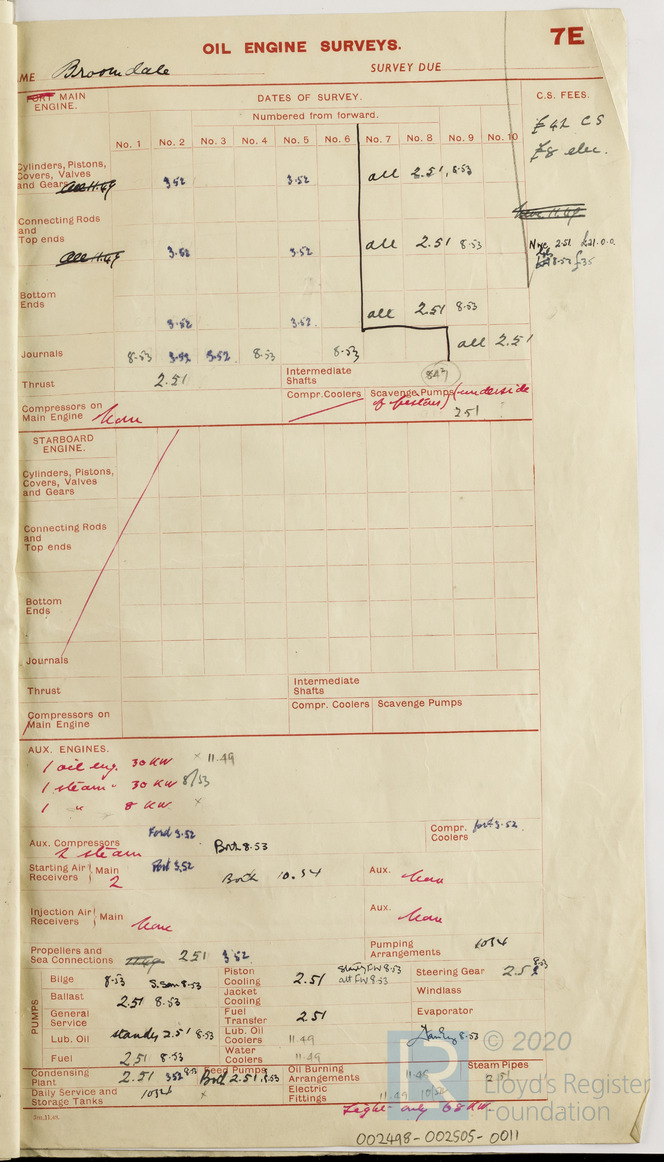 OIL ENGINE SURVEYS.
7E
ME Broomdale
SURVEY DUE
PORT MAIN ENGINE.
DATES OF SURVEY.
C.S. FEES.
Numbered from forward.
No. 1 No. 2 No. 3 No. 4 No. 5 No. 6 No. 7 No. 8 No. 9 No. 10
£42 CS
£8 elec.
Cylinders, Pistons, Covers, Valves and Gears
all 11.49
3.52 3.52 all 2.51, 8.53
Connecting Rods and Top ends
all 11.49
3.52 3.52 all 2.51 8.53
Nwc 2.51 £21.0.0.
8.53 £35
Bottom Ends
3.52 3.52. all 2.51 8.53
Journals 8.53 3.52 3.52 8.53 8.53 all 2.51
Thrust 2.51
Intermediate Shafts
Compressors on Main Engine None
Compr. Coolers
Scavenge Pumps (underside of pistons)
2.51
STARBOARD ENGINE.
Cylinders, Pistons, Covers, Valves and Gears
Connecting Rods and Top ends
Bottom Ends
Journals
Thrust
Intermediate Shafts
Compressors on Main Engine
Compr. Coolers
Scavenge Pumps
AUX. ENGINES.
1 oil eng. 30 KW × 11.49
1 steam " 30 KW 8/53
1 " 8 KW ×
Aux. Compressors
2 steam
Ford 3.52
Both 8.53
Compr. Coolers
ford 3.52.
Starting Air Receivers Main
2
Port 3.52
Both 10.54
Aux. None
Injection Air Receivers Main None
Aux. None
Propellers and Sea Connections 11.49 2.51 3.52
Pumping Arrangements 10.54
PUMPS
Bilge 8.53 S.San 8.53
Piston Cooling 2.51
Stby FW 8.53
att FW 8.53
Steering Gear 2.51 8.53
Ballast 2.51 8.53
Jacket Cooling
Windlass
General Service
Fuel Transfer 2.51
Evaporator
Lub. Oil standby 2.51 8.53
Lub. Oil Coolers 11.49
8.53
Fuel 2.51 8.53
Water Coolers 11.49
Condensing Plant 2.51 3.52 8.53
Feed Pumps Both 2.51, 8.53
Oil Burning Arrangements 11.49
Steam Pipes 2.51
Daily Service and Storage Tanks 10.54 ×
Electric Fittings 11.49 10/52
Light only 68 KW.
© 2020
LR
Lloyd's Register
Foundation
002498-002505-0011